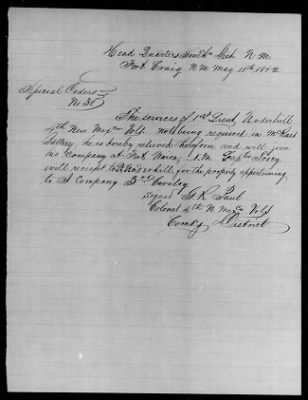 Head Quarters South Dist N. M.
Fort Craig N. M. May 18th 1862
Special Orders
No 30
The services of 1st Lieut. Underhill
4th New Mexn Vols. not being required in McRaes
Battery, he is hereby relieved therefrom and will join
his Company at Fort Union, N. M. Capt
will receipt to Underhill for the property appertaining
to Company 3rd Cavalry
Signed G. R. Paul
Colonel 4th N. Mex Vols
Comdg District